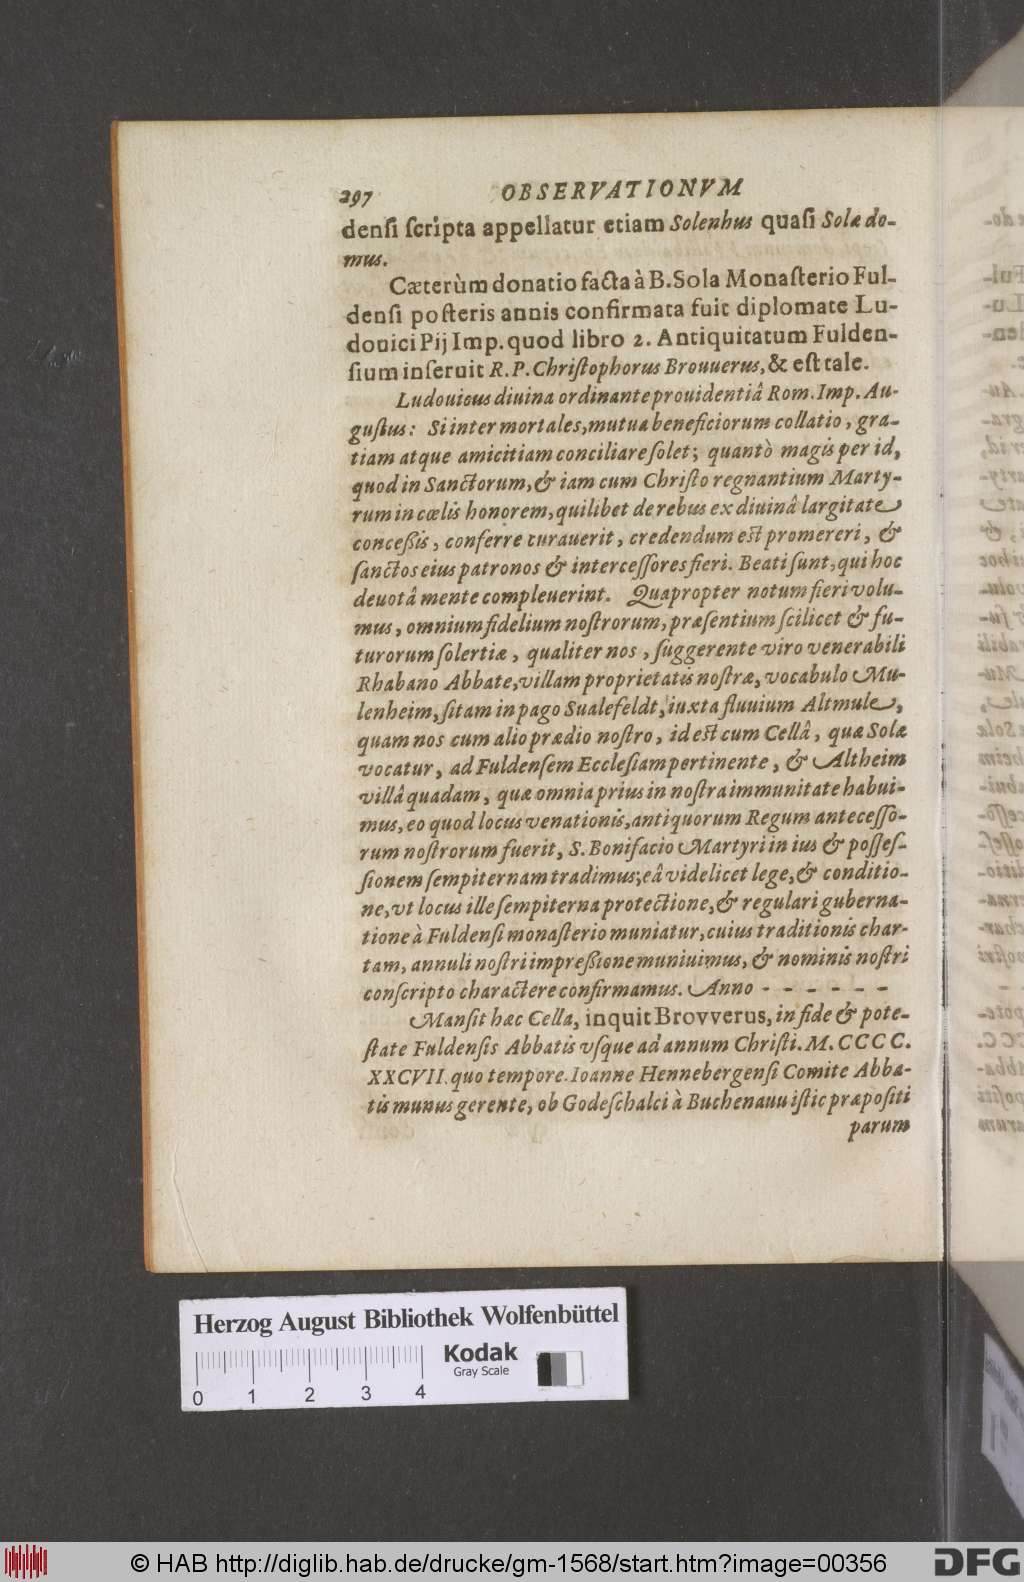 297 OBSERVATIONVM
denſi ſcripta appellatur etiam Solenhus quaſi Solæ do-
mus.
Cæterùm donatio facta à B. Sola Monaſterio Ful-
denſi poſteris annis confirmata fuit diplomate Lu-
douici Pij Imp. quod libro 2. Antiquitatum Fulden-
ſium inſeruit R. P. Chriſtophorus Brouuerus, & eſt tale.
Ludouicus diuina ordinante prouidentiâ Rom. Imp. Au-
guſtus: Si inter mortales, mutua beneficiorum collatio, gra-
tiam atque amicitiam conciliare ſolet; quantò magis per id,
quod in Sanctorum, & iam cum Chriſto regnantium Marty-
rum in cœlis honorem, quilibet de rebus ex diuinâ largitate
conceßis, conferre curauerit, credendum eſt promereri, &
ſanctos eius patronos & interceſſores fieri. Beati ſunt, qui hoc
deuotâ mente compleuerint. Quapropter notum fieri volu-
mus, omnium fidelium noſtrorum, præſentium ſcilicet & fu-
turorum ſolertiæ, qualiter nos, ſuggerente viro venerabili
Rhabano Abbate, villam proprietatis noſtræ, vocabulo Mu-
lenheim, ſitam in pago Sualefeldt, iuxta fluuium Altmule,
quam nos cum alio prædio noſtro, id eſt cum Cellâ, quæ Solæ
vocatur, ad Fuldenſem Eccleſiam pertinente, & Altheim
villâ quadam, quæ omnia prius in noſtra immunitate habui-
mus, eo quod locus venationis, antiquorum Regum anteceſſo-
rum noſtrorum fuerit, S. Bonifacio Martyri in ius & poſſeſ-
ſionem ſempiternam tradimus; eâ videlicet lege, & conditio-
ne, vt locus ille ſempiterna protectione, & regulari guberna-
tione à Fuldenſi monaſterio muniatur, cuius traditionis char-
tam, annuli noſtri impreßione muniuimus, & nominis noſtri
conſcripto charactere confirmamus. Anno - - - - - -
Manſit hæc Cella, inquit Brovverus, in fide & pote-
ſtate Fuldenſis Abbatis vſque ad annum Chriſti. M. CCCC.
XXCVII. quo tempore Ioanne Hennebergenſi Comite Abba-
tis munus gerente, ob Godeſchalci à Buchenauu iſtic præpoſiti
parum
Herzog August Bibliothek Wolfenbüttel
Kodak
Gray Scale
0 1 2 3 4
© HAB http://diglib.hab.de/drucke/gm-1568/start.htm?image=00356
DFG